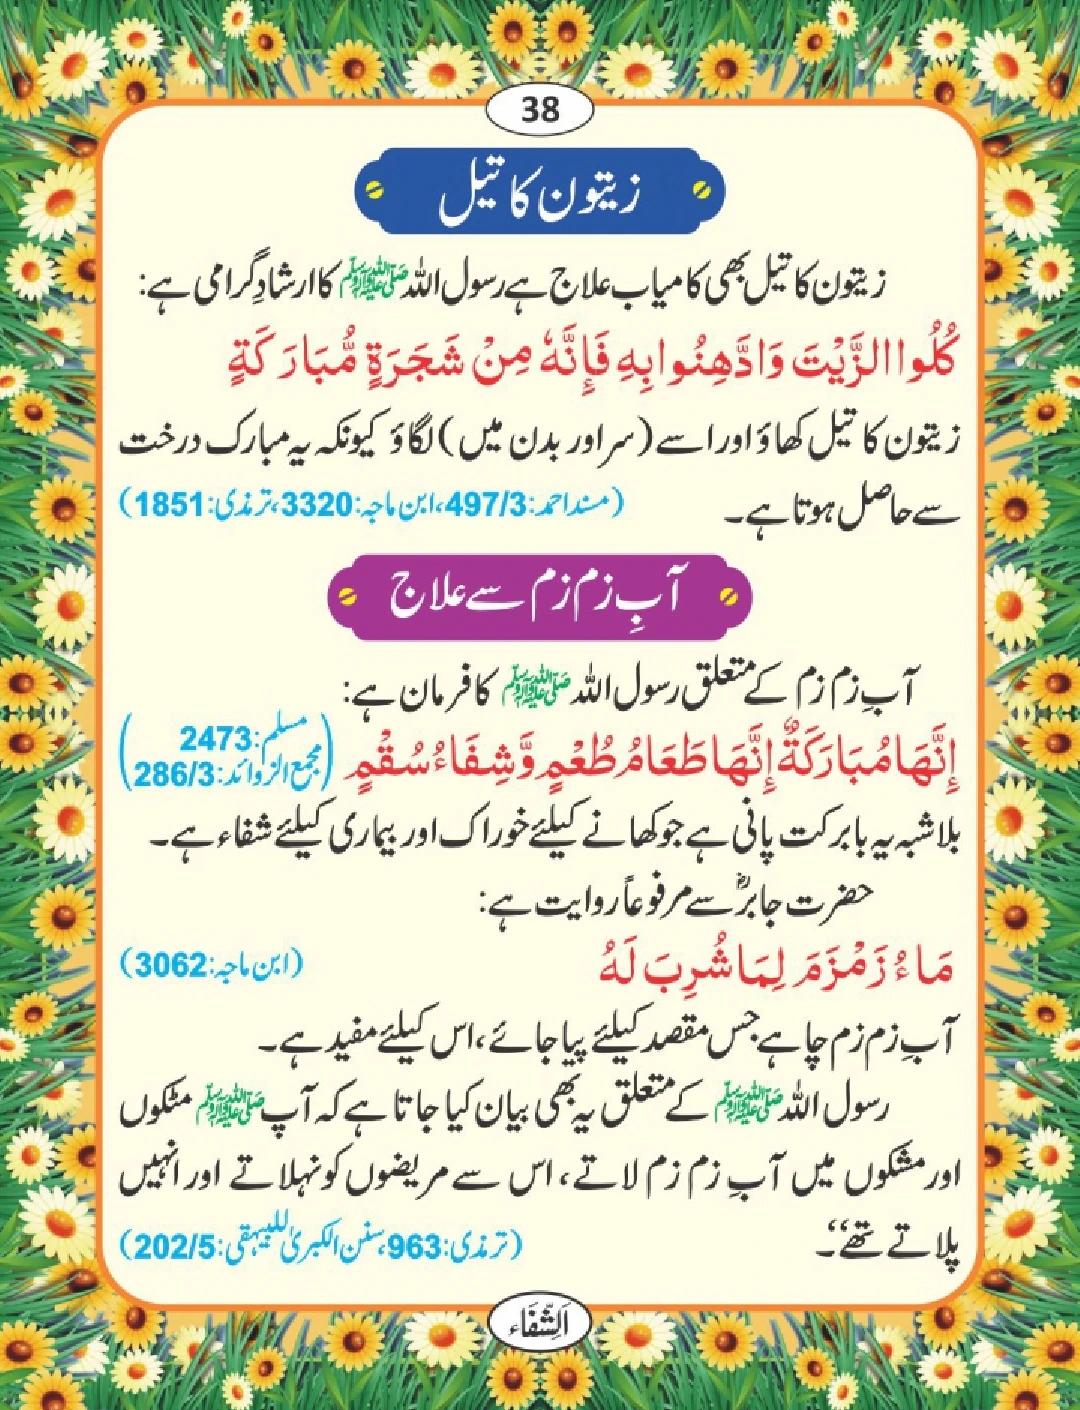 38
زیتون کا تیل
زیتون کا تیل بھی کامیاب علاج ہے رسول اللہ ﷺ کا ارشادِ گرامی ہے:
كُلُوا الزَّيْتَ وَادَّهِنُوا بِهِ فَإِنَّهُ مِنْ شَجَرَةٍ مُّبَارَكَةٍ
زیتون کا تیل کھاؤ اور اسے (سر اور بدن میں) لگاؤ کیونکہ یہ مبارک درخت
سے حاصل ہوتا ہے۔ (مسند احمد: 497/3، ابن ماجہ: 3320، ترمذی: 1851)
آبِ زم زم سے علاج
آبِ زم زم کے متعلق رسول اللہ ﷺ کا فرمان ہے:
إِنَّهَا مُبَارَكَةٌ إِنَّهَا طَعَامُ طُعْمٍ وَّشِفَاءُ سُقْمٍ (مسلم: 2473 مجمع الزوائد: 286/3)
بلاشبہ یہ بابرکت پانی ہے جو کھانے کیلئے خوراک اور بیماری کیلئے شفاء ہے۔
حضرت جابرؓ سے مرفوعاً روایت ہے:
مَاءُ زَمْزَمَ لِمَا شُرِبَ لَهُ (ابن ماجہ: 3062)
آبِ زم زم چاہے جس مقصد کیلئے پیا جائے، اس کیلئے مفید ہے۔
رسول اللہ ﷺ کے متعلق یہ بھی بیان کیا جاتا ہے کہ آپ ﷺ مٹکوں
اور مشکوں میں آبِ زم زم لاتے، اس سے مریضوں کو نہلاتے اور انہیں
پلاتے تھے‘‘۔ (ترمذی: 963، سنن الکبریٰ للبیہقی: 202/5)
اَلشِّفَاء